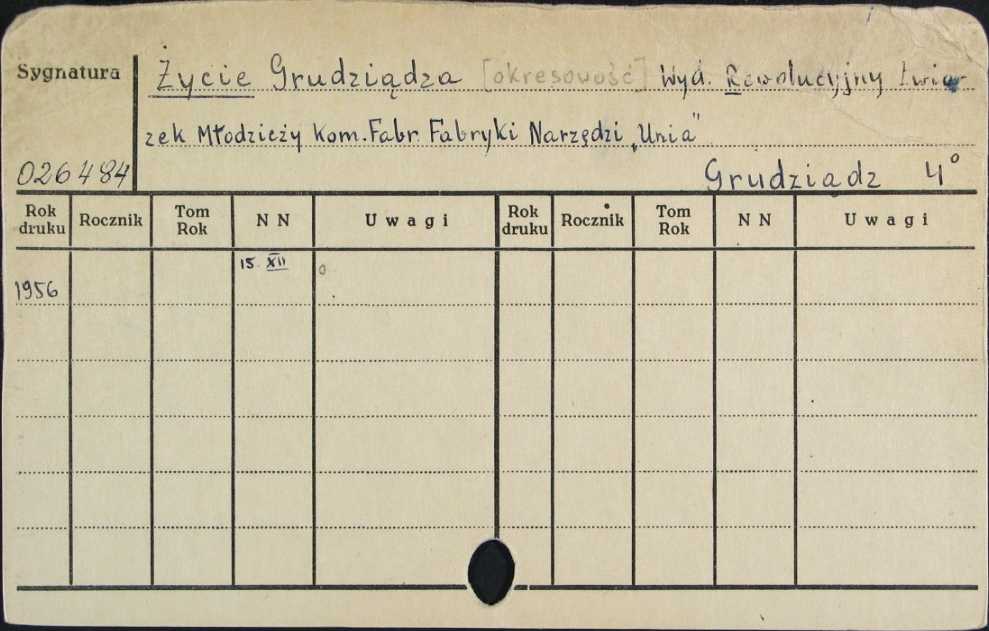 Sygnatura
Życie Grudziądza [okresowość] Wyd. Rewolucyjny Zwią-
zek Młodzieży Kom. Fabr. Fabryki Narzędzi „Unia"
026484
Grudziądz 4°
Rok druku Rocznik Tom Rok N N Uwagi Rok druku Rocznik Tom Rok N N Uwagi
15. XII
1956